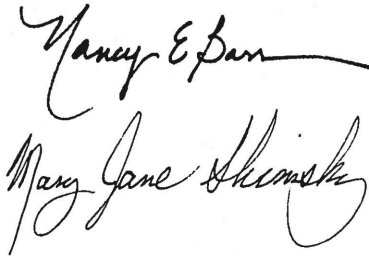 Nancy E Barr
Mary Jane Shimsky